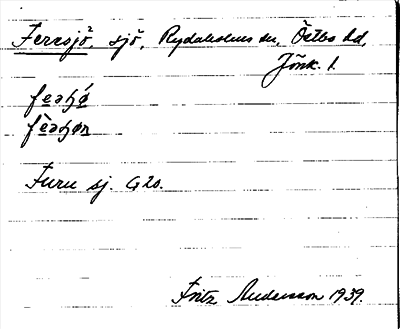 Feresjö², sjö, Rydaholms sn, Östbo hd,
Jönk. l.
feəɧǿ
fèəɧøn
Furu sj. G20.
Fritz Andersson 1939.